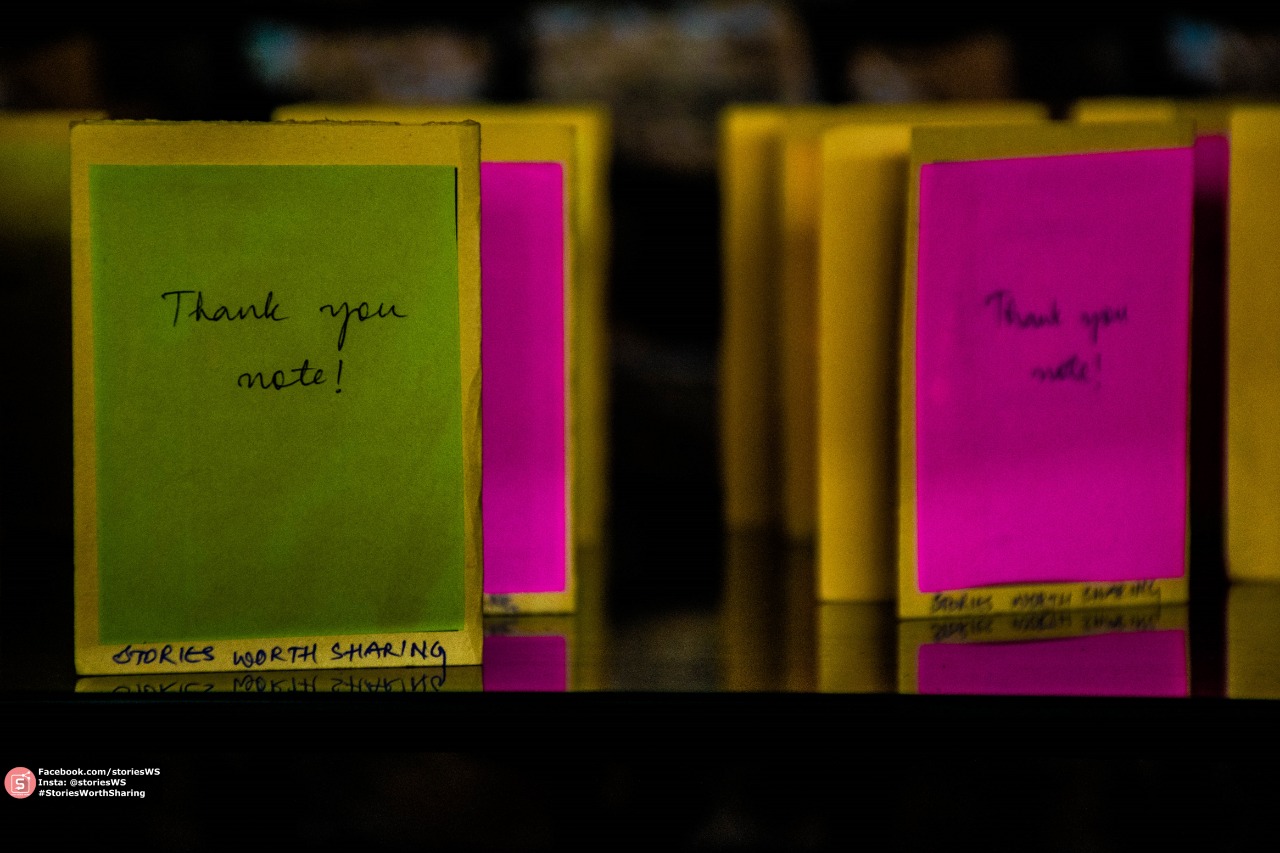 Thank you
note!
STORIES WORTH SHARING
Thank you
note!
STORIES WORTH SHARING
Facebook.com/storiesWS
Insta: @storiesWS
#StoriesWorthSharing